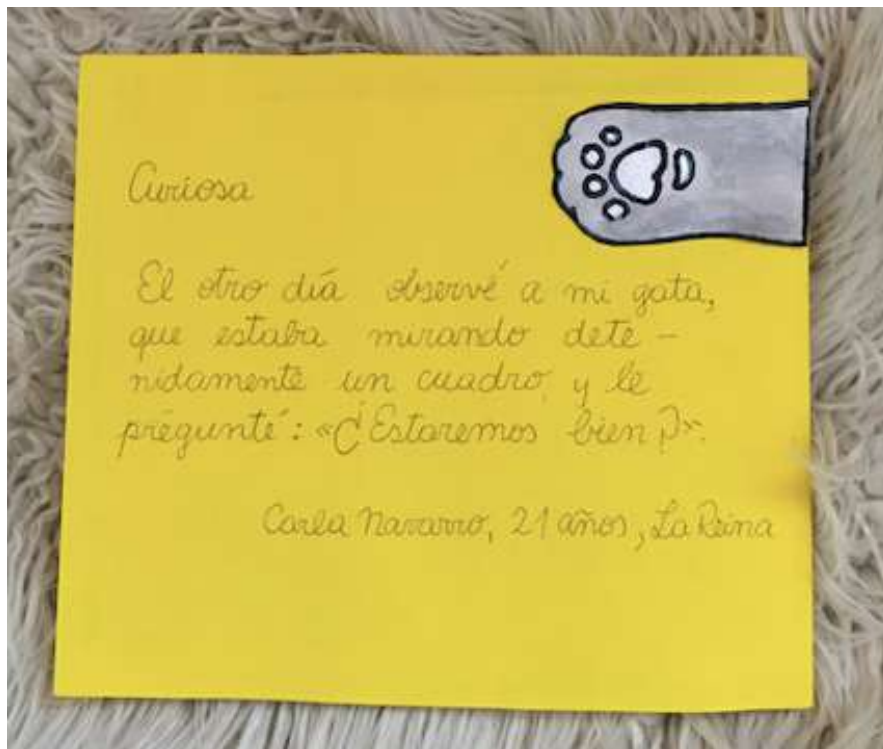 Curiosa
El otro día observé a mi gata,
que estaba mirando dete-
nidamente un cuadro, y le
pregunté: «¿Estaremos bien?».
Carla Navarro, 21 años, La Reina